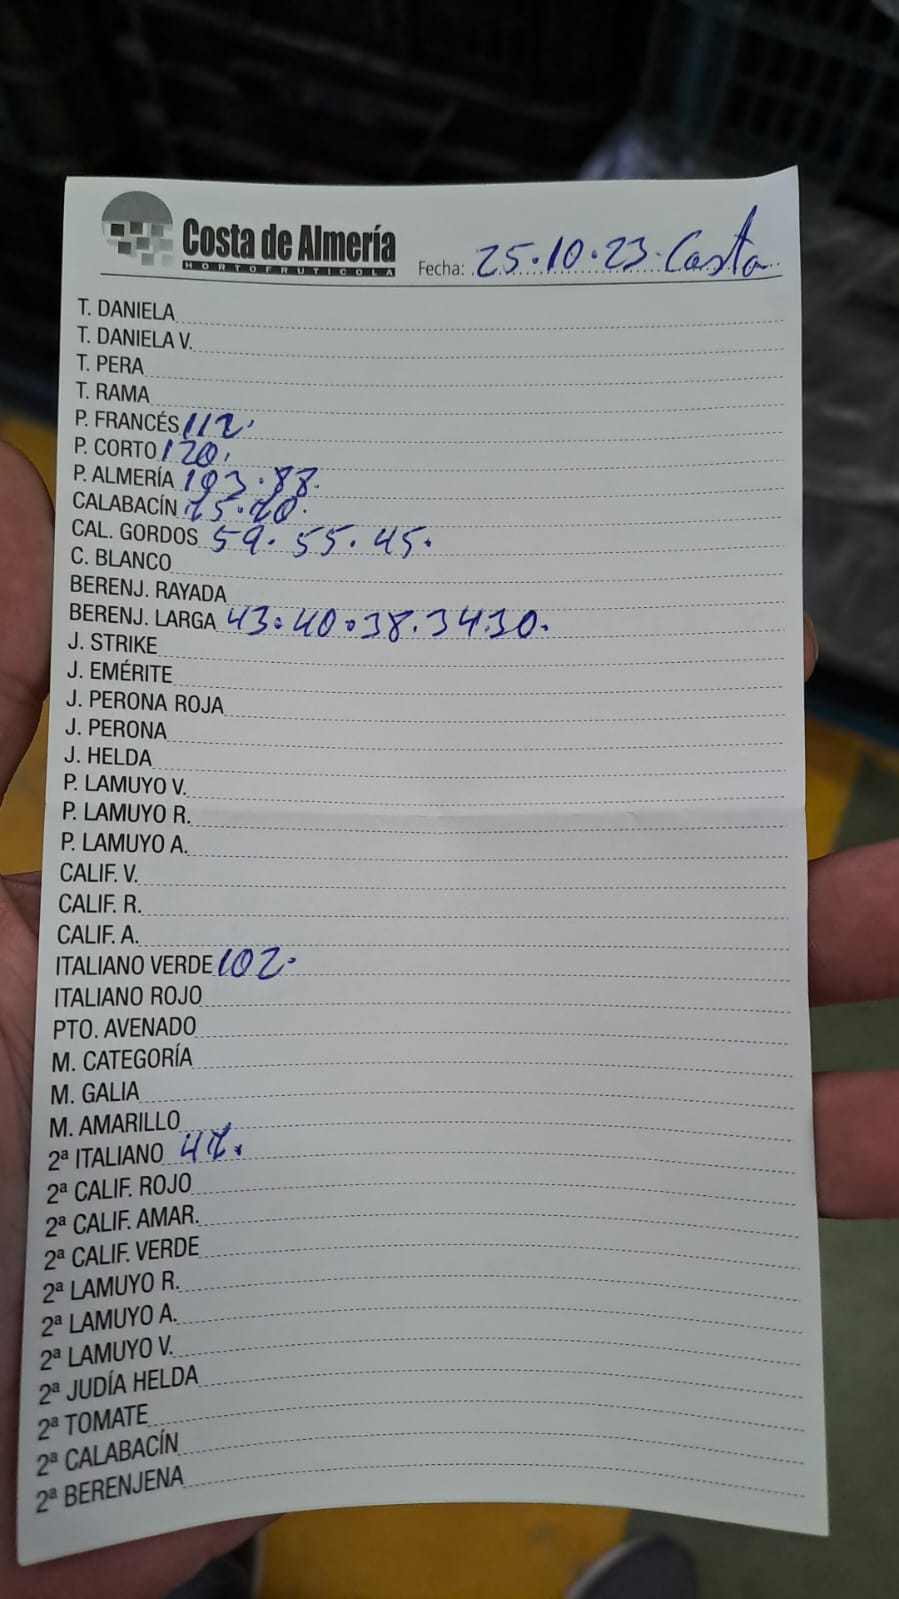 Costa de Almería
HORTOFRUTICOLA
Fecha: 25.10.23. Costa
T. DANIELA
T. DANIELA V.
T. PERA
T. RAMA
P. FRANCÉS 112.
P. CORTO 120.
P. ALMERÍA 103.88.
CALABACÍN
CAL. GORDOS 59. 55. 45.
C. BLANCO
BERENJ. RAYADA
BERENJ. LARGA 43.40.38.34.30.
J. STRIKE
J. EMÉRITE
J. PERONA ROJA
J. PERONA
J. HELDA
P. LAMUYO V.
P. LAMUYO R.
P. LAMUYO A.
CALIF. V.
CALIF. R.
CALIF. A.
ITALIANO VERDE 102.
ITALIANO ROJO
PTO. AVENADO
M. CATEGORÍA
M. GALIA
M. AMARILLO
2ª ITALIANO
2ª CALIF. ROJO
2ª CALIF. AMAR.
2ª CALIF. VERDE
2ª LAMUYO R.
2ª LAMUYO A.
2ª LAMUYO V.
2ª JUDÍA HELDA
2ª TOMATE
2ª CALABACÍN
2ª BERENJENA